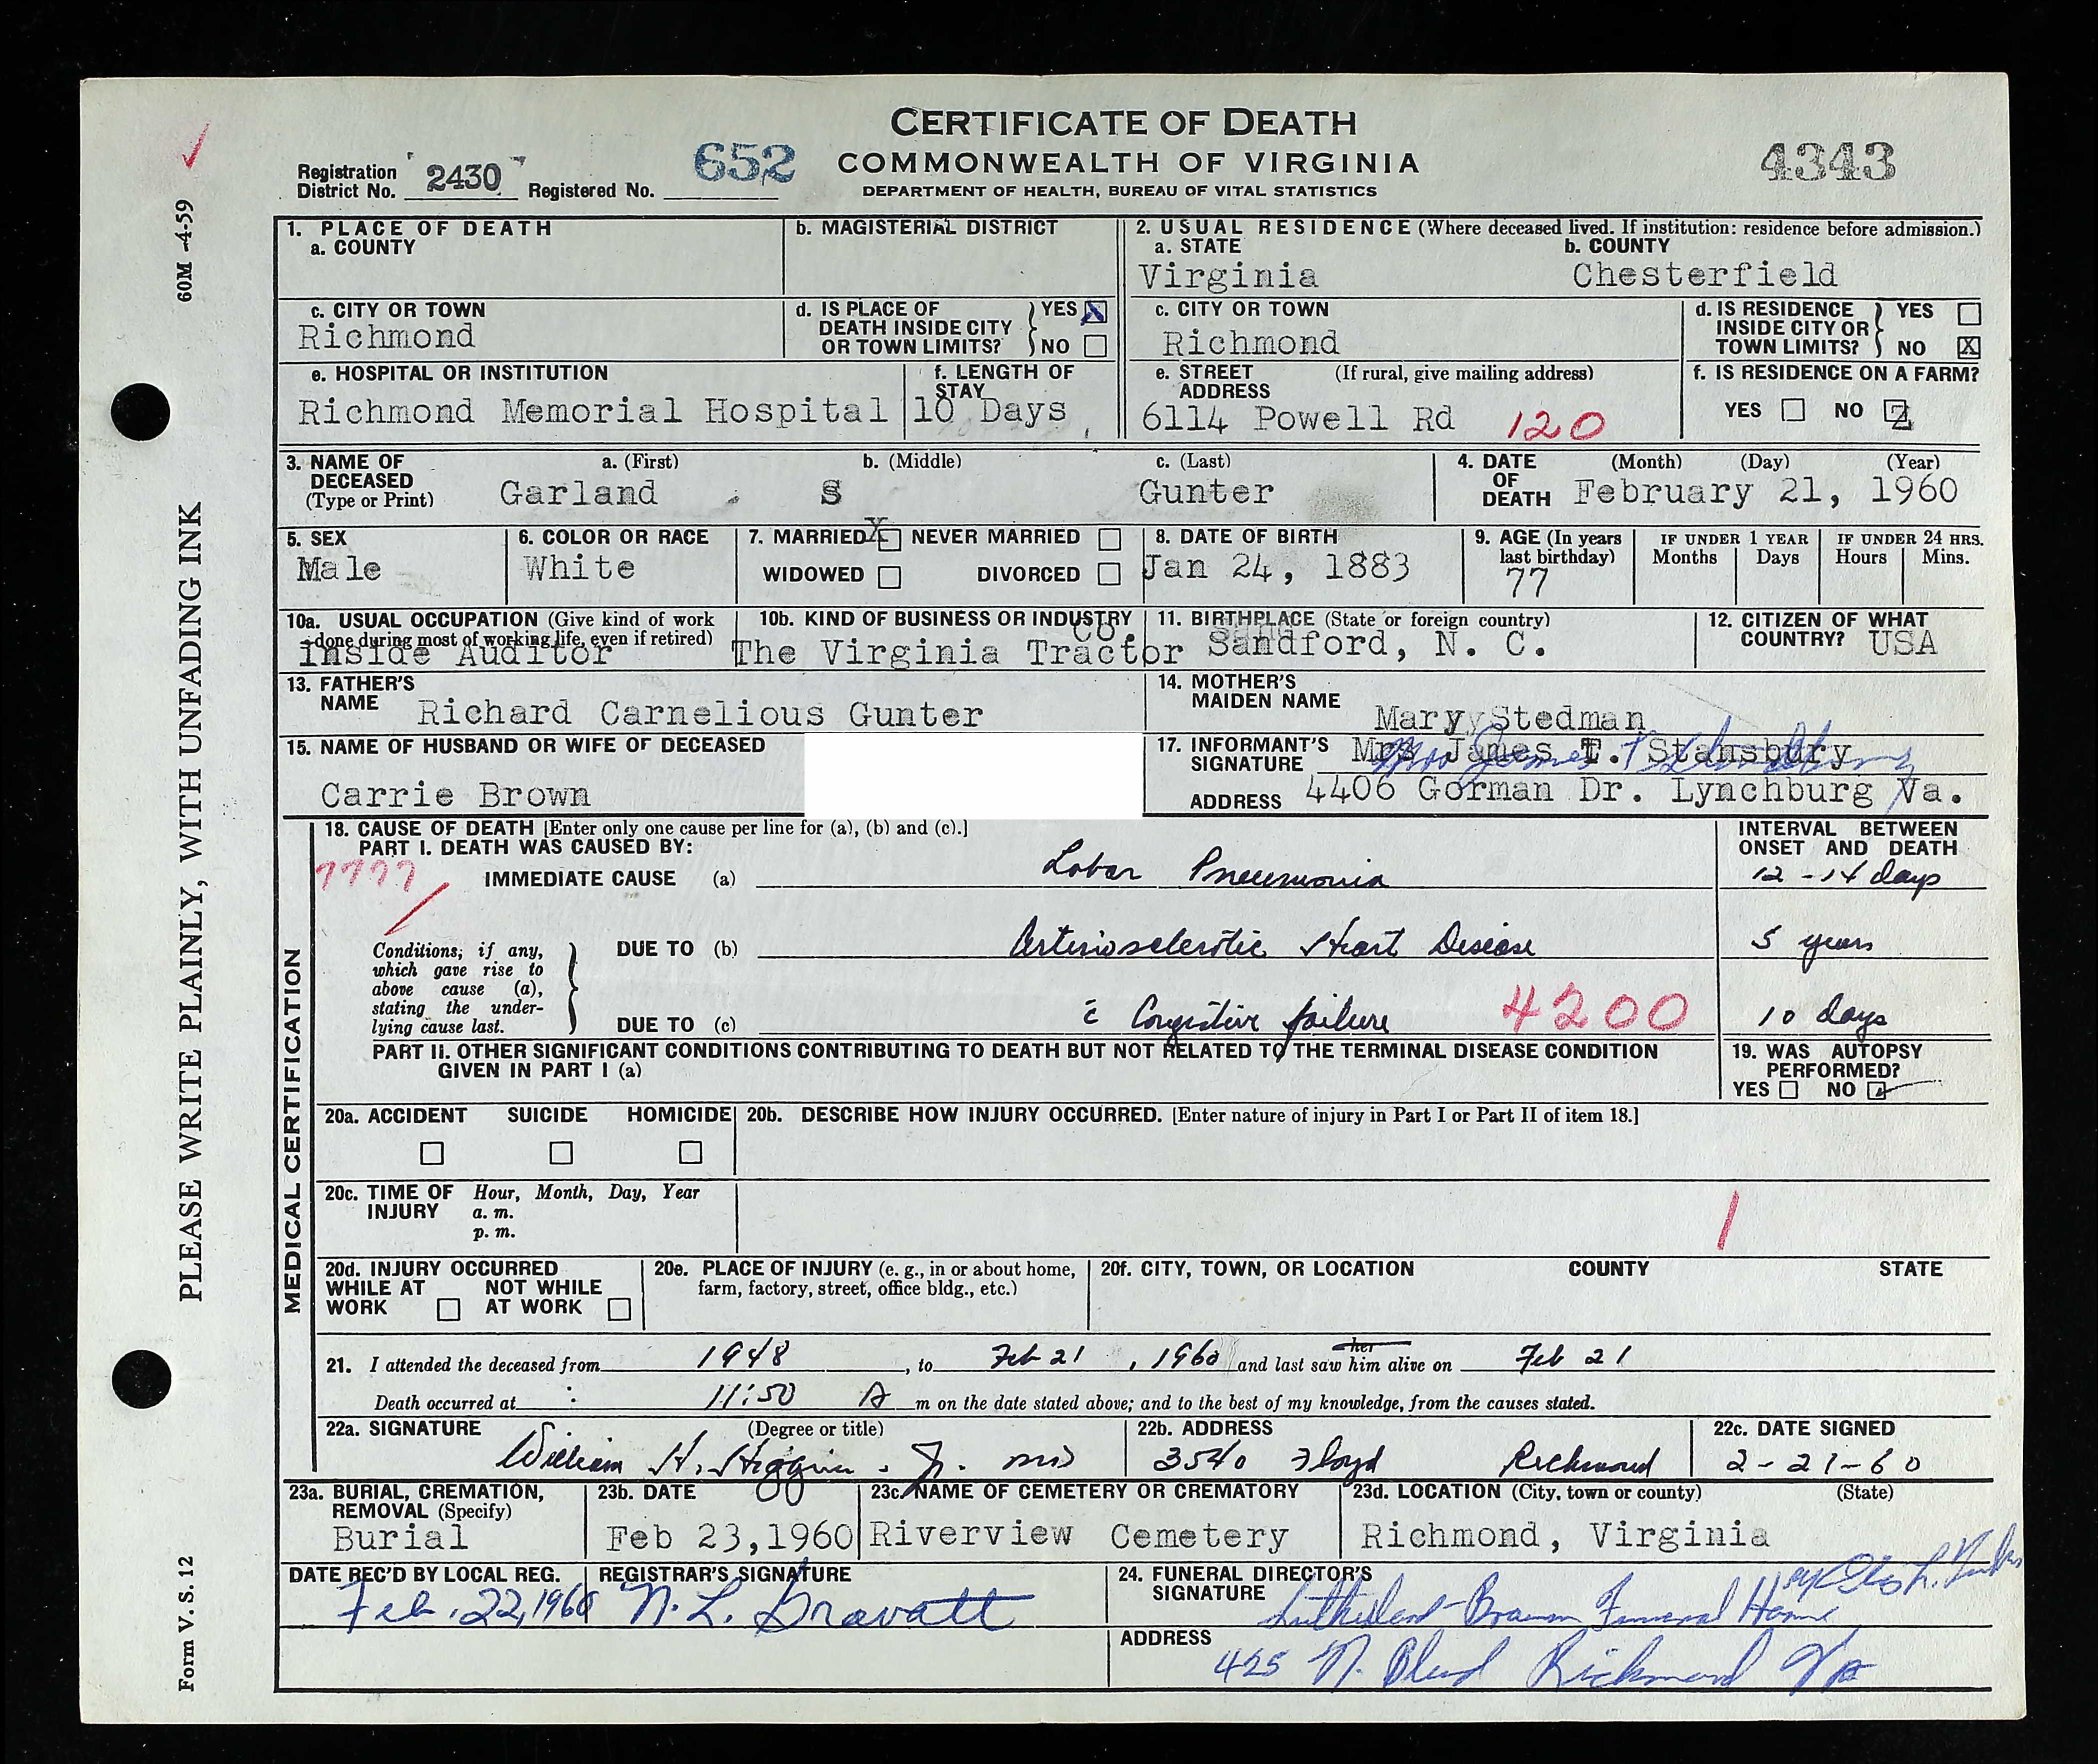 CERTIFICATE OF DEATH
COMMONWEALTH OF VIRGINIA
DEPARTMENT OF HEALTH, BUREAU OF VITAL STATISTICS
Registration District No. 2430 Registered No. 652
4343
60M -4-59
PLEASE WRITE PLAINLY, WITH UNFADING INK
Form V. S. 12
1. PLACE OF DEATH
a. COUNTY
b. MAGISTERIAL DISTRICT
2. USUAL RESIDENCE (Where deceased lived. If institution: residence before admission.)
a. STATE
Virginia
b. COUNTY
Chesterfield
c. CITY OR TOWN
Richmond
d. IS PLACE OF DEATH INSIDE CITY OR TOWN LIMITS? YES X NO
c. CITY OR TOWN
Richmond
d. IS RESIDENCE INSIDE CITY OR TOWN LIMITS? YES NO X
e. HOSPITAL OR INSTITUTION
Richmond Memorial Hospital
f. LENGTH OF STAY
10 Days
e. STREET ADDRESS (If rural, give mailing address)
6114 Powell Rd 120
f. IS RESIDENCE ON A FARM?
YES NO
3. NAME OF DECEASED (Type or Print)
a. (First) b. (Middle) c. (Last)
Garland S Gunter
4. DATE OF DEATH (Month) (Day) (Year)
February 21, 1960
5. SEX
Male
6. COLOR OR RACE
White
7. MARRIED X NEVER MARRIED
WIDOWED DIVORCED
8. DATE OF BIRTH
Jan 24, 1883
9. AGE (In years last birthday)
77
IF UNDER 1 YEAR
Months Days
IF UNDER 24 HRS.
Hours Mins.
10a. USUAL OCCUPATION (Give kind of work done during most of working life, even if retired)
Inside Auditor
10b. KIND OF BUSINESS OR INDUSTRY
The Virginia Tractor Co.
11. BIRTHPLACE (State or foreign country)
Sandford, N. C.
12. CITIZEN OF WHAT COUNTRY? USA
13. FATHER'S NAME Richard Carnelious Gunter
14. MOTHER'S MAIDEN NAME Mary Stedman
15. NAME OF HUSBAND OR WIFE OF DECEASED
Carrie Brown
17. INFORMANT'S SIGNATURE Mrs James T. Stansbury
Mrs James T Stansbury
ADDRESS 4406 Gorman Dr. Lynchburg Va.
MEDICAL CERTIFICATION
18. CAUSE OF DEATH [Enter only one cause per line for (a), (b) and (c).]
PART I. DEATH WAS CAUSED BY:
INTERVAL BETWEEN ONSET AND DEATH
7777
IMMEDIATE CAUSE (a) Lobar Pneumonia 12 - 14 days
Conditions, if any, which gave rise to above cause (a), stating the underlying cause last.
DUE TO (b) Arteriosclerotic Heart Disease 5 years
DUE TO (c) c̄ Congestive failure 4200 10 days
PART II. OTHER SIGNIFICANT CONDITIONS CONTRIBUTING TO DEATH BUT NOT RELATED TO THE TERMINAL DISEASE CONDITION GIVEN IN PART I (a)
19. WAS AUTOPSY PERFORMED?
YES NO
20a. ACCIDENT SUICIDE HOMICIDE
20b. DESCRIBE HOW INJURY OCCURRED. [Enter nature of injury in Part I or Part II of item 18.]
20c. TIME OF INJURY Hour, Month, Day, Year
a. m.
p. m.
20d. INJURY OCCURRED
WHILE AT WORK NOT WHILE AT WORK
20e. PLACE OF INJURY (e. g., in or about home, farm, factory, street, office bldg., etc.)
20f. CITY, TOWN, OR LOCATION COUNTY STATE
21. I attended the deceased from 1948, to Feb 21, 1960 and last saw her him alive on Feb 21
Death occurred at 11:50 A m on the date stated above; and to the best of my knowledge, from the causes stated.
22a. SIGNATURE (Degree or title)
William H. Higgins. Jr. MD
22b. ADDRESS
3540 Floyd Richmond
22c. DATE SIGNED
2-21-60
23a. BURIAL, CREMATION, REMOVAL (Specify)
Burial
23b. DATE
Feb 23,1960
23c. NAME OF CEMETERY OR CREMATORY
Riverview Cemetery
23d. LOCATION (City, town or county) (State)
Richmond, Virginia
DATE REC'D BY LOCAL REG.
Feb. 22, 1960
REGISTRAR'S SIGNATURE
N. L. Gravatt
24. FUNERAL DIRECTOR'S SIGNATURE
Sutherland-Brown Funeral Home
ADDRESS
425 N. Blvd Richmond Va